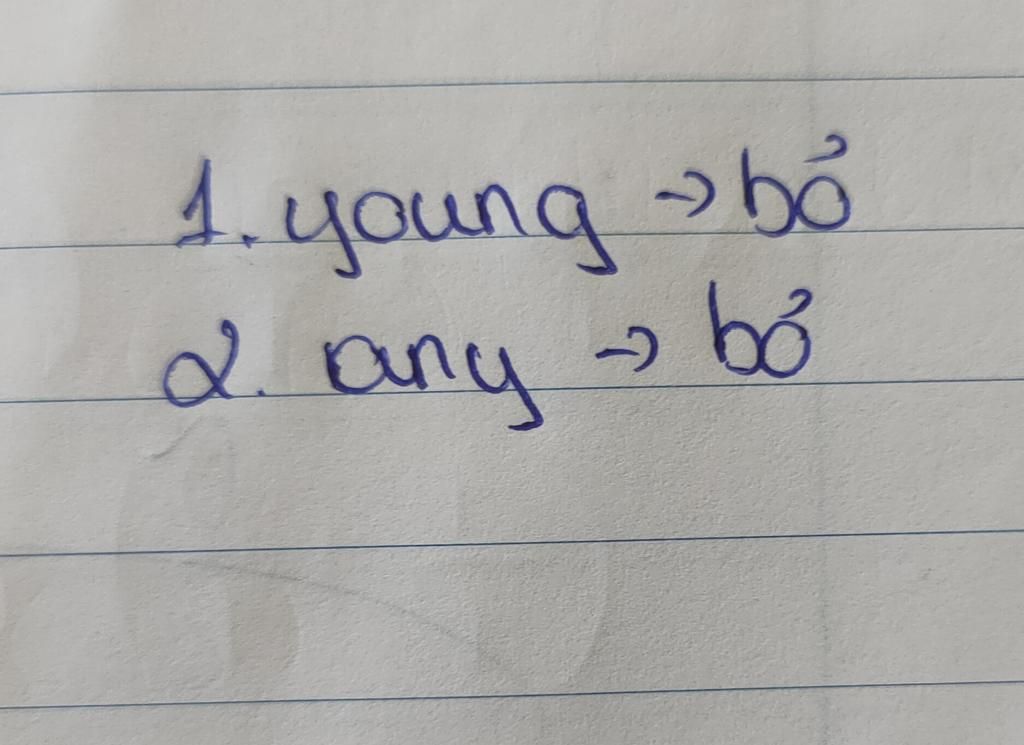 1. young → bỏ
2. any → bỏ